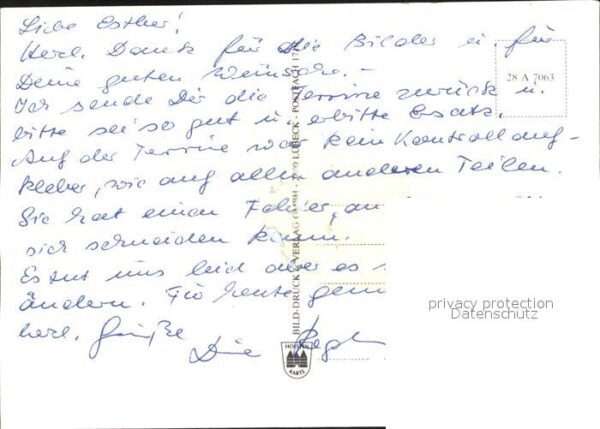 Liebe Esther!
Herzl. Dank für die Bilder u. für
Deine guten Wünsche. -
28 A 7063
Ich sende Dir die Terrine zurück u.
bitte sei so gut u. erbitte Ersatz.
Auf der Terrine war kein Kontrollauf-
kleber, wie auf allen anderen Teilen.
Sie hat einen Fehler, an
sich schneiden kann.
Es tut uns leid aber es
ändern. Für heute
herzl. Grüße
Die
privacy protection
Datenschutz
BILD-DRUCK VERLAG GMBH LÜBECK - POSTFACH
KARTE